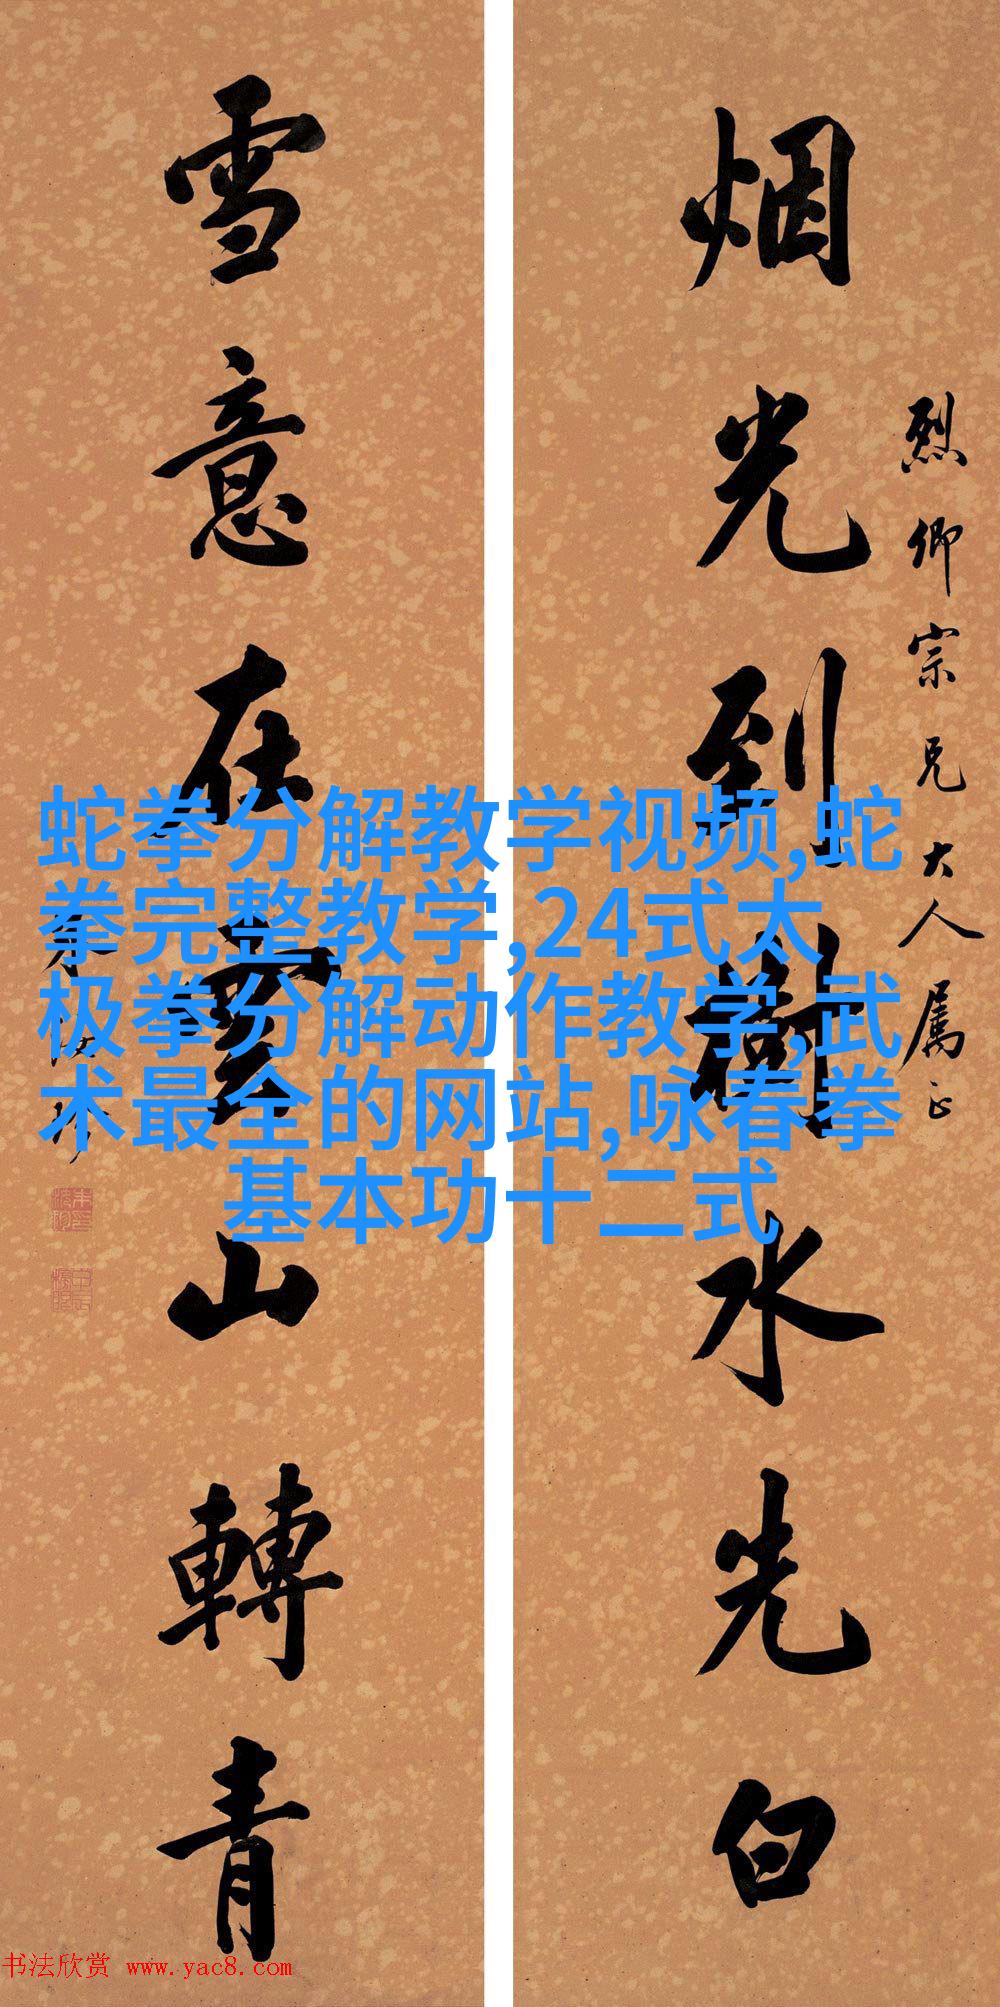 烟光到樹水先白
烈卿宗兄大人属正
雪意在雲山轉青
蛇拳分解教学视频,蛇
拳完整教学,24式太
极拳分解动作教学,武
术最全的网站,咏春拳
基本功十二式
书法欣赏 www.yac8.com